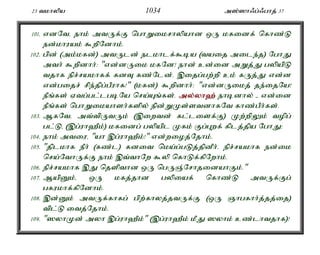 23 வமாலிய 1034 அஸ்ஸாஃப்ஃபாத் 37
101. எனவே, நாம் அவருக்கு பொறுமைசாலியான ஒரு மகனைக் கொண்டு
நன்மாராயம் கூறினோம்.
102. பின் (அம்மகன்) அவருடன் நடமாடக்கூடிய (வயதை அடைந்த) போது
அவர் கூறினார்: "என்னருமை மகனே! நான் உன்னை அறுத்து பலியிடு
வதாக நிச்சயமாகக் கனவு கண்டேன். இதைப்பற்றி உம் கருத்து என்ன
என்பதைச் சிந்திப்பீராக!" (மகன்) கூறினார்: "என்னருமைத் தந்தையே!
நீங்கள் ஏவப்பட்டபடி யே செய்யுங்கள். அல்லாஹ் நாடினால் - என்னை
நீங்கள் பொறுமையாளர்களில் நின்றுமுள்ளவனாகவே காண்பீர்கள்.
103. ஆகவே, அவ்விருவரும் (இறைவன் கட்டளைக்கு) முற்றிலும் வழிப்
பட்டு, (இப்ராஹீம்) மகனைப் பலியிட முகம் குப்புறக் கிடத்திய போது;
104. நாம் அவரை, "யா இப்ராஹீம்!" என்றழைத்தோம்.
105. "திடமாக நீர் (கண்ட) கனவை மெய்ப்படுத்தினீர். நிச்சயமாக நன்மை
செய்வோருக்கு நாம் இவ்வாறே கூலி கொடுக்கிறோம்.
106. நிச்சயமாக இது தெளிவான ஒரு பெருஞ்சோதனையாகும்."
107. ஆயினும், ஒரு மகத்தான பலியைக் கொண்டு அவருக்குப்
பகரமாக்கினோம்.
108. இன்னும் அவருக்காகப் பிற்காலத்தவருக்கு (ஒரு ஞாபகார்த்தத்தை)
விட்டு வைத்தோம்.
109. "ஸலாமுன் அலா இப்ராஹீம்" (இப்ராஹீம் மீது ஸலாம் உண்டாவதாக)!